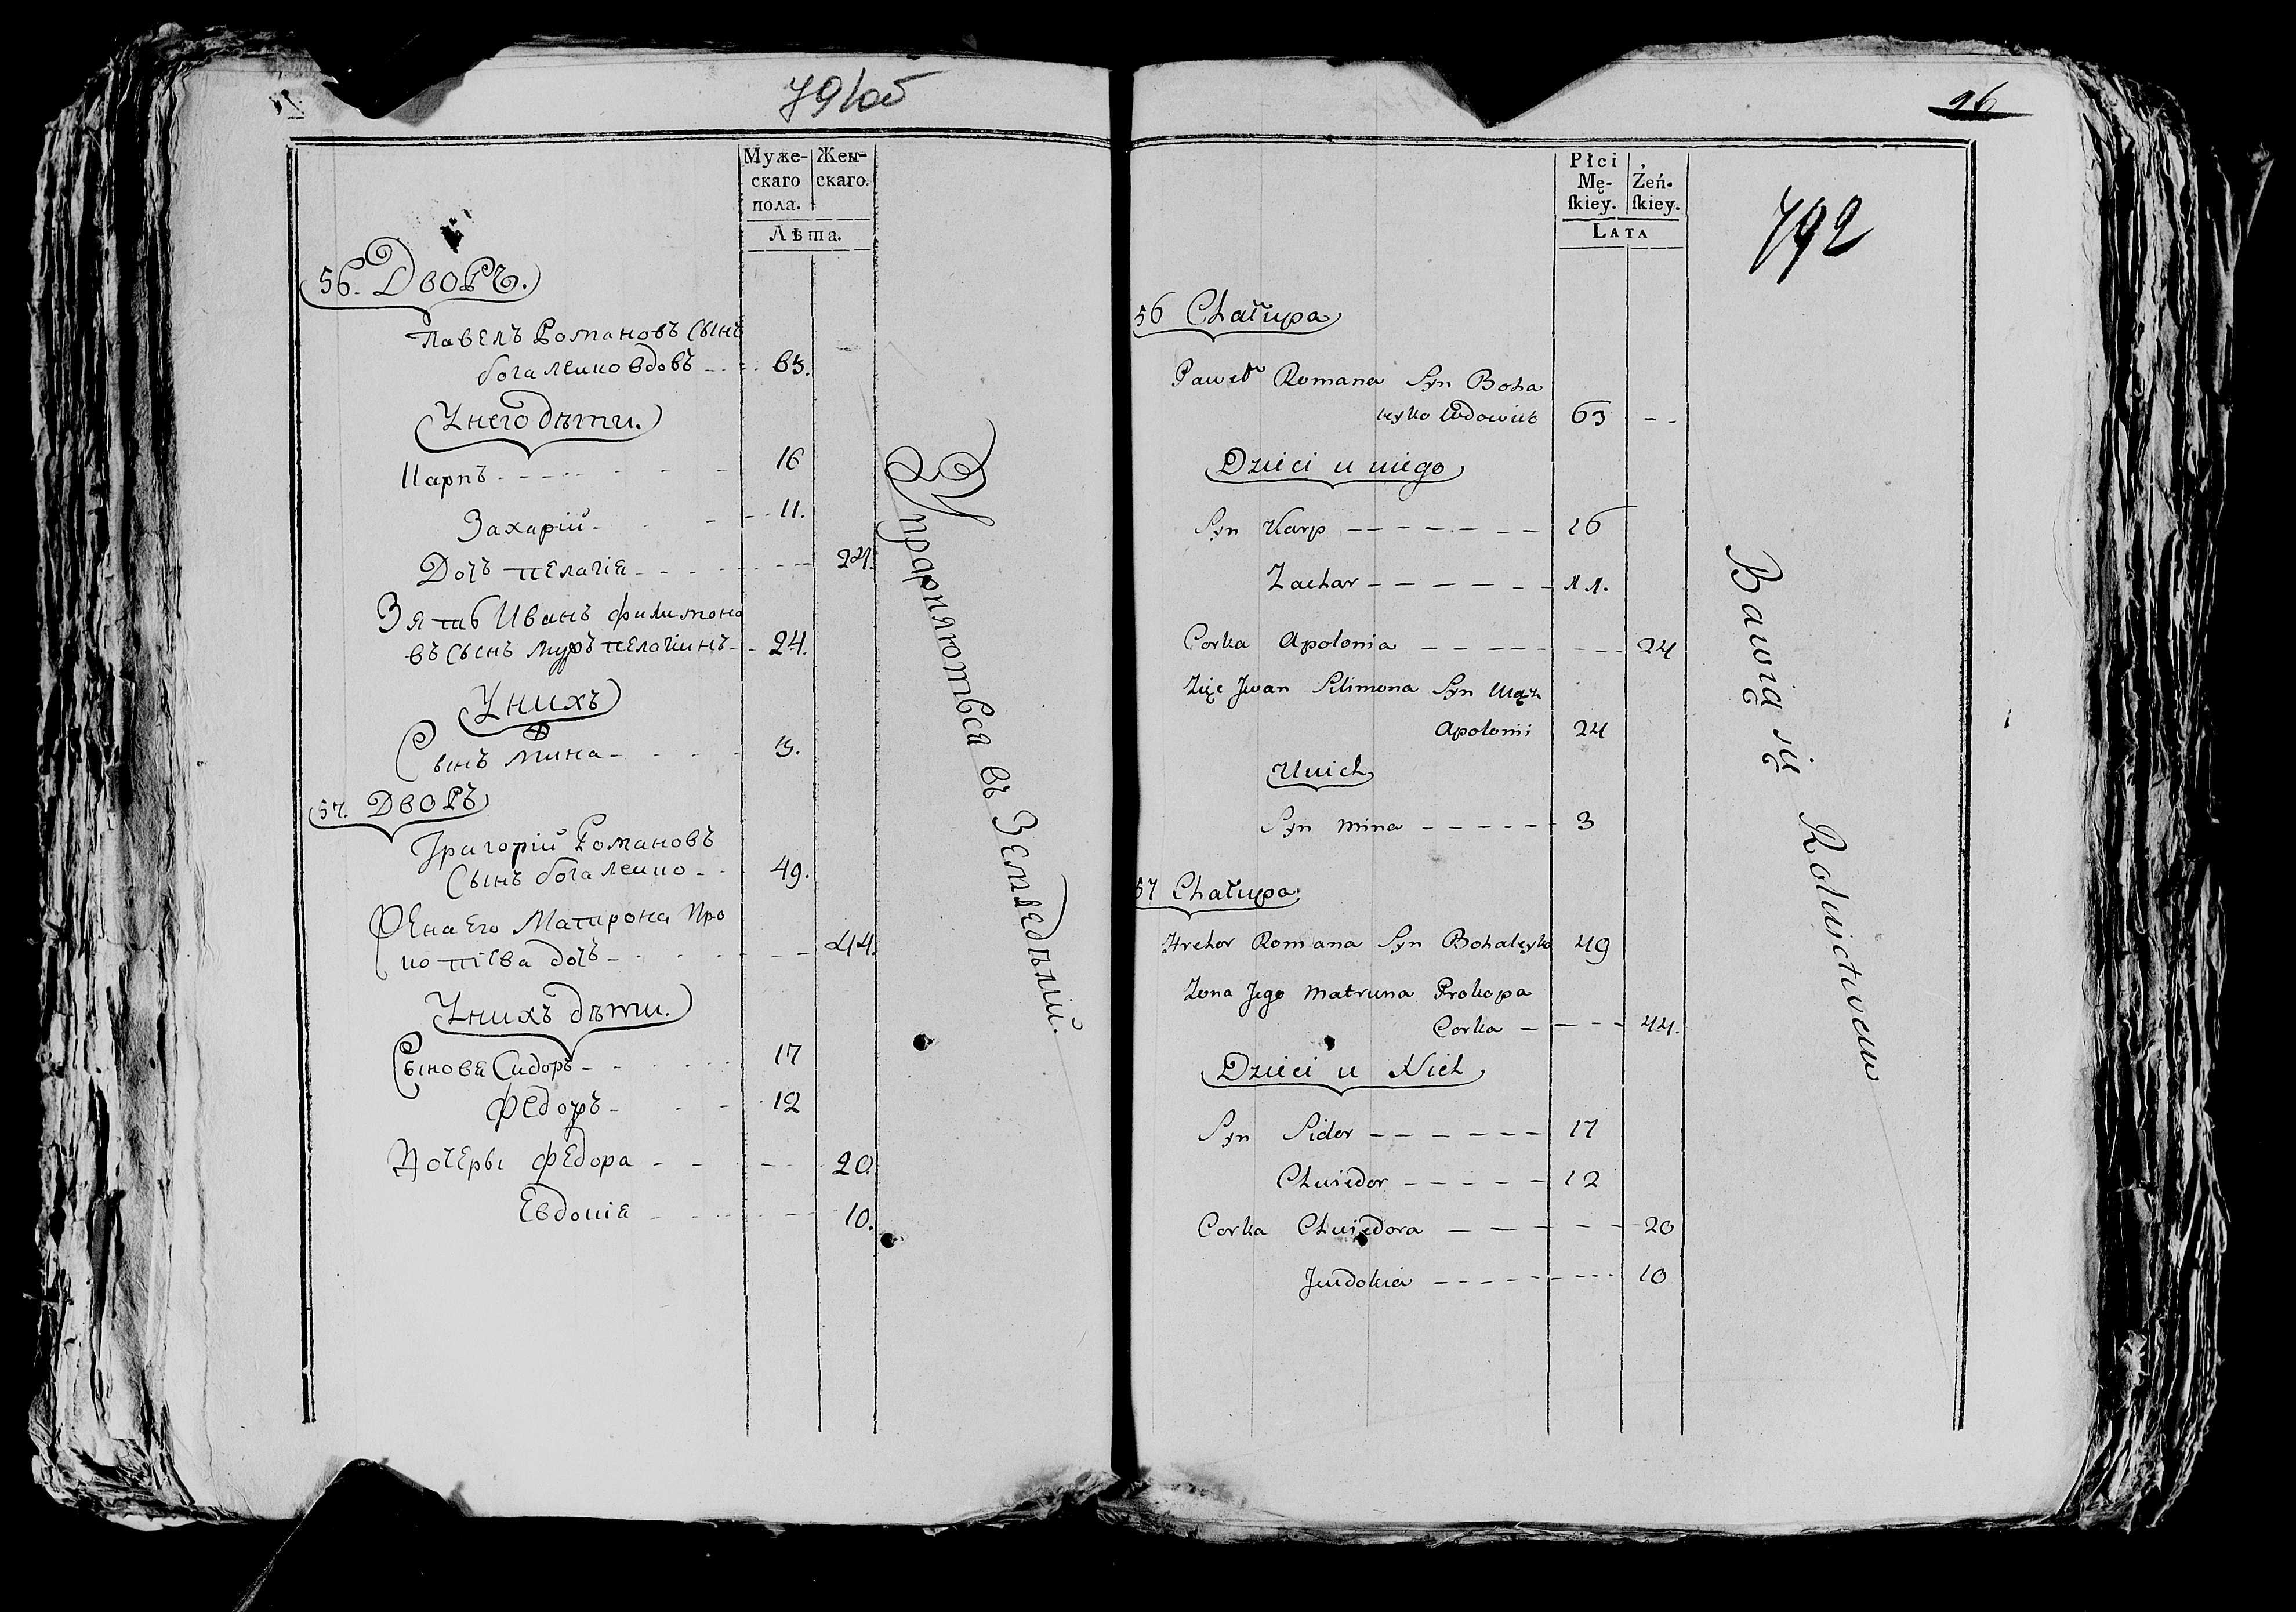 791об
Муже-
скаго
пола.
Жен-
скаго.
Лѣта.
56. Дворъ.
Павелъ Романовъ Сынъ
богалейко вдовъ - - 63.
Унего дѣти.
Карпъ - - - - - - 16
Захарій - - - - 11.
Дочь пелагіа - - - - - - 24.
Зять Иванъ филимоно
въ Сынъ мужъ пелагіинъ - - 24.
Унихъ
Сынъ Мина - - - - 3.
57. Дворъ
Григорій Романовъ
Сынъ богалейко - - 49.
Жена Его Матрона Про
копіева дочь - - - - - - 44.
Унихъ дѣти.
Сыновя Сидоръ - - - - - 17
Федоръ - - - - 12
Дочеры Федора - - - - 20.
Евдокіа - - - - - - 10.
Упражняютъса въ Земледѣлій.
96
792
Płci
Mę-
ſkiey.
Żeń-
ſkiey.
LATA
56 Chałupa
Paweł Romana Syn Boha
leyko Wdowiec 63 - -
Dzieci u niego
Syn Karp - - - - - - - 16
Zachar - - - - - - 11.
Corka Apolonia - - - - - - - - 24
Zięć Jwan Filimona Syn Mąż
Apolonii 24
Unich
Syn Mina - - - - - 3
57 Chałupa
Hrehor Romana Syn Bohaleyko 49
Zona Jego Matruna Prokopa
Corka - - - - 44.
Dzieci u Nich
Syn Sidor - - - - - - 17
Chwiedor - - - - - 12
Corka Chwiedora - - - - - - 20
Jewdokia - - - - - - - - 10
Bawią się Rolnictwem